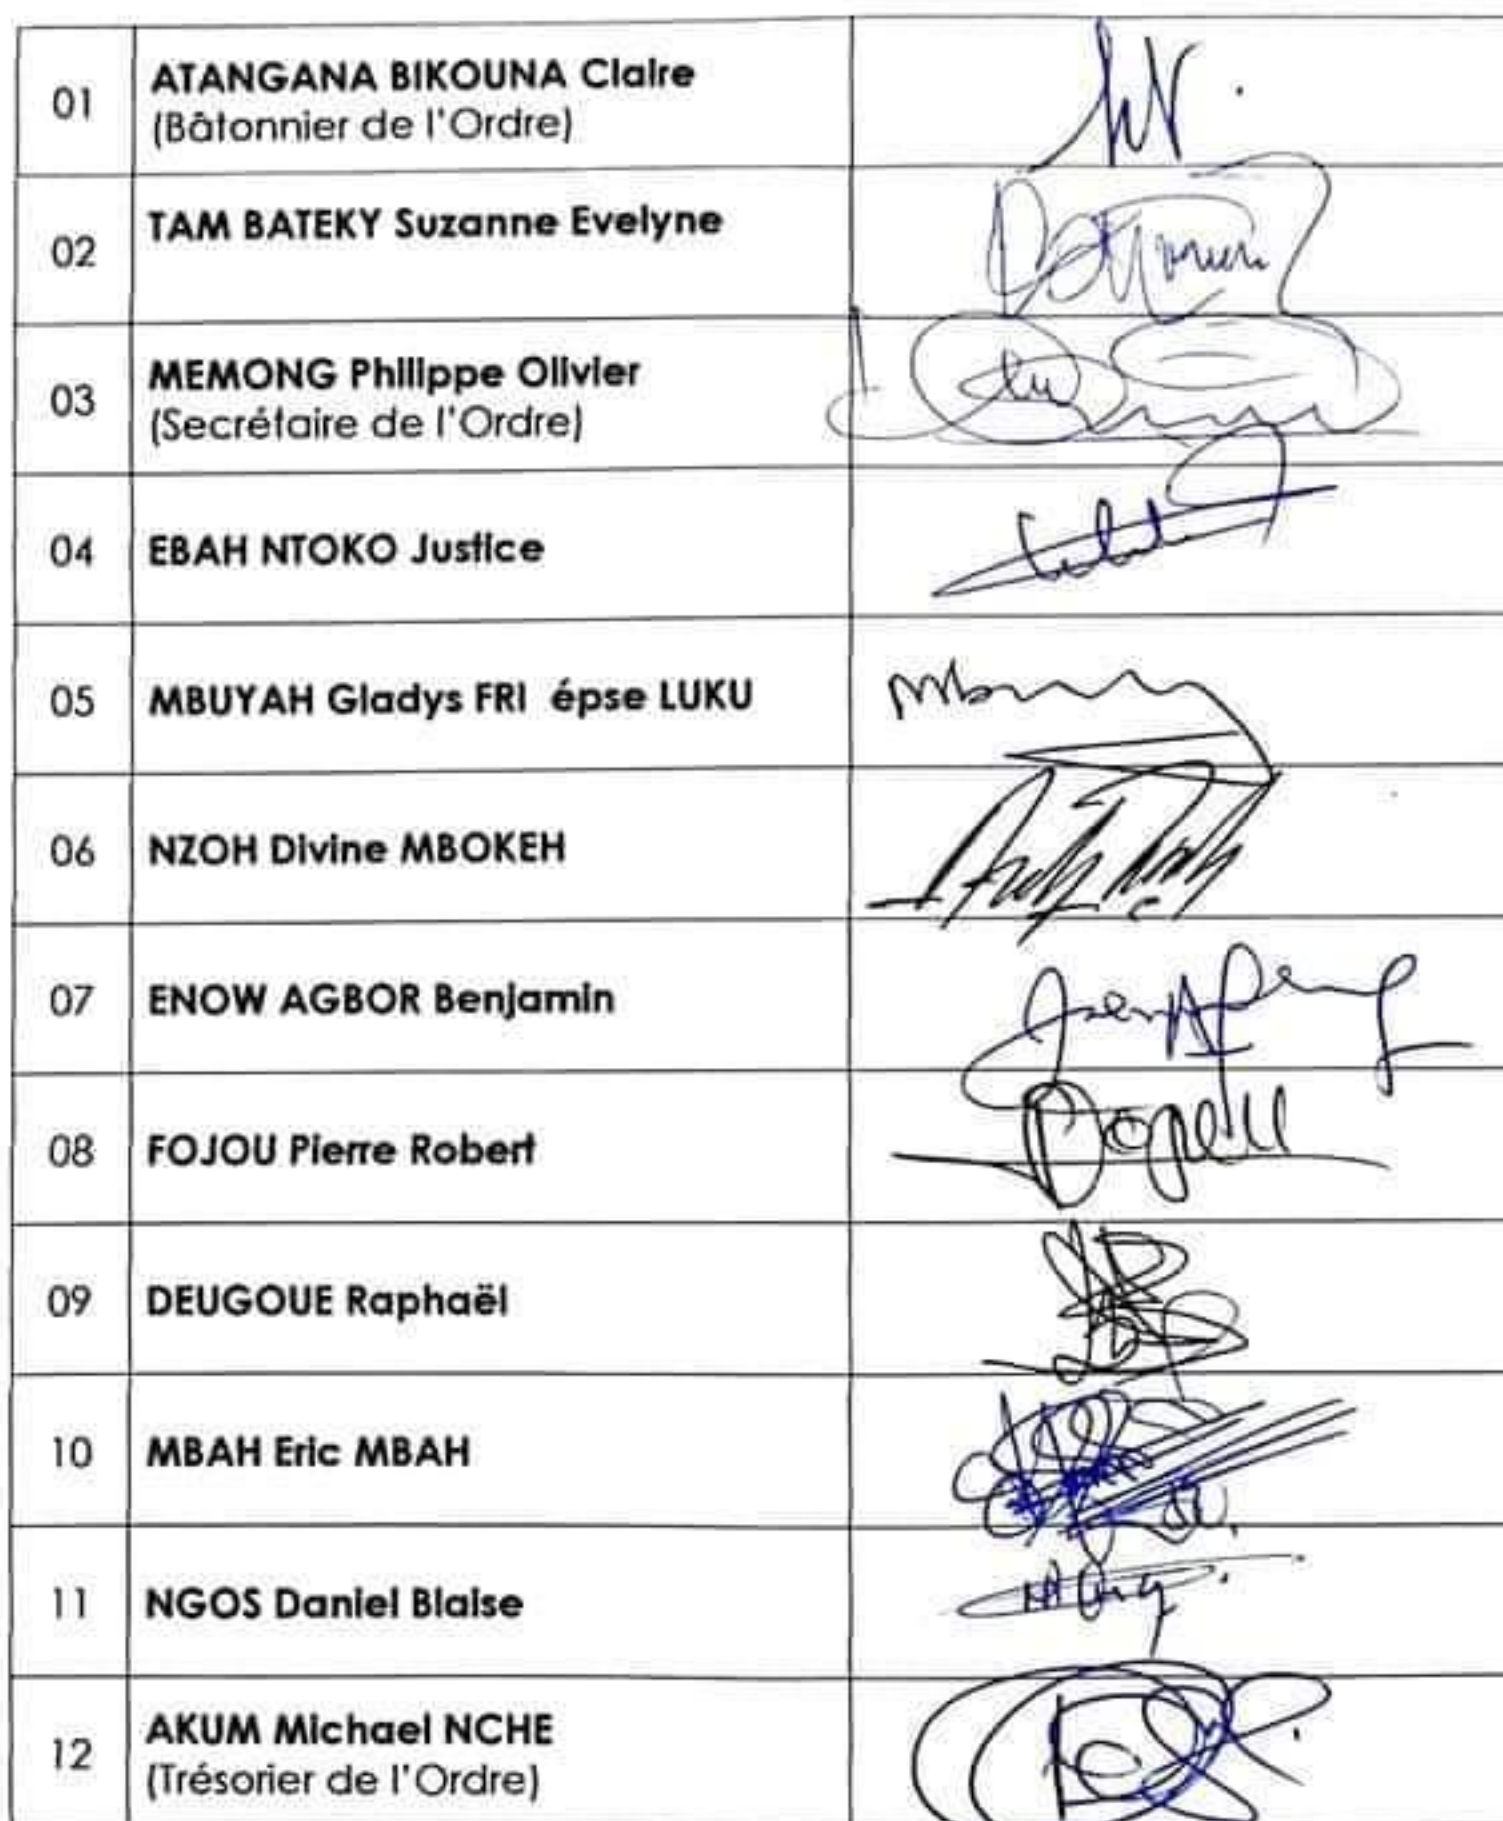 01
ATANGANA BIKOUNA Claire
(Bâtonnier de l'Ordre)
02
TAM BATEKY Suzanne Evelyne
03
MEMONG Philippe Olivier
(Secrétaire de l'Ordre)
04
EBAH NTOKO Justice
05
MBUYAH Gladys FRI épse LUKU
06
NZOH Divine MBOKEH
07
ENOW AGBOR Benjamin
08
FOJOU Pierre Robert
09
DEUGOUE Raphaël
10
MBAH Eric MBAH
11
NGOS Daniel Blaise
12
AKUM Michael NCHE
(Trésorier de l'Ordre)